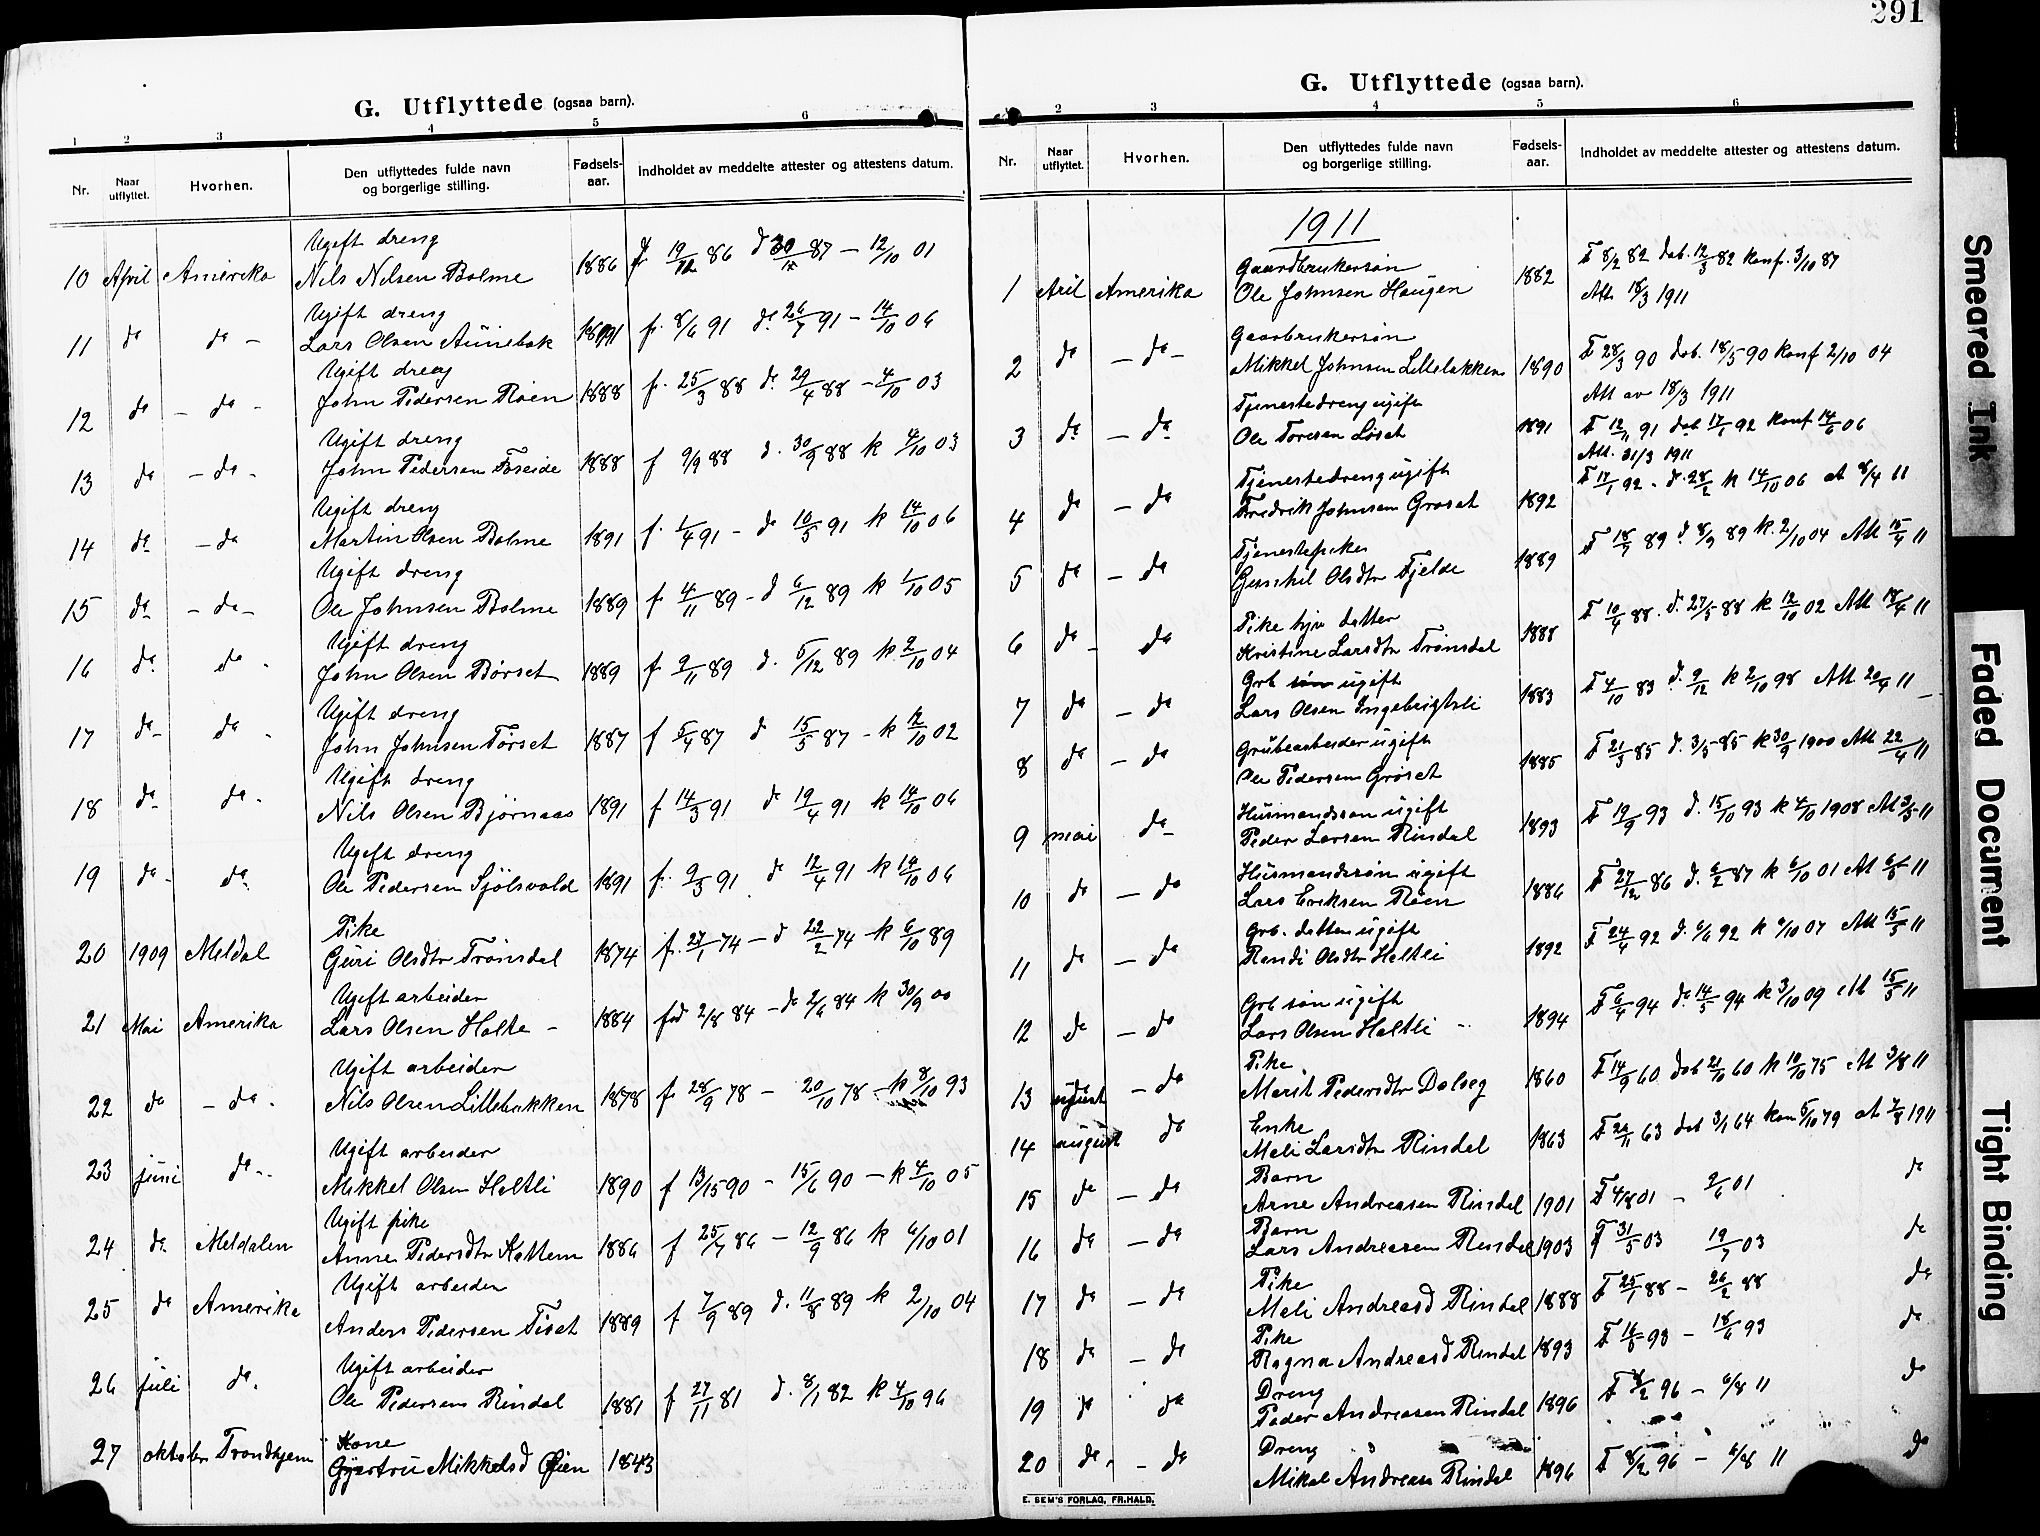 291
G. Utflyttede (ogsaa barn).
1 2 3 4 5 6
Nr. Naar utflyttet. Hvorhen. Den utflyttedes fulde navn og borgerlige stilling. Fødselsaar. Indholdet av meddelte attester og attestens datum.
Ugift dreng
10 April Amerika Nils Nilsen Bolme 1886 f 19/12 86 d 30/12 87 – 12/10 01
Ugift dreng
11 do do – Lars Olsen Aunebak 1891 f. 8/6 91 d. 26/7 91 – 14/10 06
Ugift dreng
12 do – do – John Pedersen Røen 1888 f. 25/3 88 d. 29/4 88 – 4/10 03
Ugift dreng
13 do – do – John Pedersen Foseide 1888 f 9/9 88 d. 30/9 88 k 4/10 03
Ugift dreng
14 do – do Martin Olsen Bolme 1891 f. 1/4 91 – d 10/5 91 k 14/10 06
Ugift dreng
15 do – do – Ole Johnsen Bolme 1889 f 4/11 89 – d 6/12 89 k 1/10 05
Ugift dreng
16 do do – John Olsen Børset 1889 f 9/11 89 d. 5/12 89 k. 2/10 04
Ugift dreng
17 do – do – John Johnsen Tørset 1887 f 5/4 87 d 15/5 87 – k 12/10 02
Ugift dreng
18 do do – Nils Olsen Bjørnaas 1891 f 14/3 91 d 19/4 91 k 14/10 06
Ugift dreng
19 do – do – Ole Pedersen Sjölsvold 1891 f. 9/3 91 d 12/4 91 k 14/10 06
Pike
20 1909 Meldal Guri Olsdtr Trönsdal 1874 f. 27/1 74 – d 22/2 74 – k 6/10 89
Ugift arbeider
21 Mai Amerika Lars Olsen Holte – 1884 fød 2/8 84 – d 2/6 84 k 30/9 00
Ugift arbeider
22 do – do – Nils Olsen Lillebakken 1878 f. 28/9 78 – 20/10 78 – k 8/10 93
Ugift arbeider
23 juni do – Mikkel Olsen Holtli 1890 f 13/15 90 – 15/6 90 – k 4/10 05
Ugift pike
24 do Meldalen Anne Pedersdtr Kattem 1886 f 25/7 86 – 12/9 86 k 6/10 01
Ugift arbeider
25 do Amerika Anders Pedersen Tiset 1889 f 7/9 89 d. 11/8 89 k 2/10 04
Ugift arbeider
26 juli do – Ole Pedersen Rindal 1881 f 27/11 81 d. 8/1 82 k 4/10 96
Kone
27 oktober Trondhjem Gjertru Mikkelsd Øien 1843
G. Utflyttede (ogsaa barn).
2 3 4 5 6
Nr. Naar utflyttet. Hvorhen. Den utflyttedes fulde navn og borgerlige stilling. Fødselsaar. Indholdet av meddelte attester og attestens datum.
1911
Gaardbrukersøn F 8/2 82 dob. 12/3 82 konf. 3/10 87
1 Aril Amerika Ole Johnsen Haugen 1882 Att 18/3 1911
Gaarbrukersøn
2 do – do – Mikkel Johnsen Lillebakken 1890 F 28/3 90 dob. 18/5 90 konf 2/10 04
Att av 18/3 1911
Tjenestedreng ugift
3 do – do Ole Toresen Løset 1891 F 12/11 91 dob 17/1 92 konf 14/6 06
Att. 31/3 1911
Tjenestedreng ugift
4 do – do Fredrik Johnsen Grøset 1892 F 17/1 92 – d. 28/2 k 14/10 06 at 8/4 11
Tjenestepike
5 do – do Gunhil Olsdtr Fjelde 1889 F 18/7 89 d. 8/9 89 k. 2/10 04 Att 15/4 11
Pike hjv datter
6 do – do Kristine Larsdtr Trønsdal 1888 F 10/4 88. d. 27/5 88 k 12/10 02 Att 18/4 11
Grb søn ugift
7 do – do Lars Olsen Ingebrigtsli 1883 F 4/10 83 d. 9/12 k 2/10 98 Att 20/4 11 –
Grubearbeider ugift
8 do – do Ole Pedersen Grøset 1885 F 21/3 85 d. 3/5 85 k 30/9 1900 Att 22/4 11
Husmandssøn ugift
9 mai do – Peder Larsen Rindal 1893 F 19/9 93 d. 15/10 93 k 4/10 1908 At 3/5 11
Husmandssøn ugift
10 do – do Lars Eriksen Røen 1886 F 27/12 86 d. 6/2 87 k 6/10 01 At 6/5 11
Grb. datter ugift
11 do – do Randi Olsdtr Holtli 1892 F 24/4 92 d. 6/6 92 k 6/10 07 Att 15/5 11
Grb søn ugift
12 do – do Lars Olsen Holtli 1894 F 6/4 94 d. 14/5 94 k 3/10 09 Att 15/5 11
Pike
13 – do Marit Pedersdtr Dolseg 1860 F 14/9 60 dob 21/10 60 k 10/10 75 Att 3/8 11
Enke
14 august do Meli Larsdtr Rindal 1863 F 26/11 63 dob 3/1 64 kon 5/10 79 at 7/8 1911
Barn
15 do – do Arne Andreasen Rindal 1901 F 4/8 01 – 2/6 01 do
Barn
16 do – do Lars Andreasen Rindal 1903 F 31/5 03 19/7 03 do
Pike
17 do – do Meli Andreasd Rindal 1888 F 25/1 88 – 26/2 88 do
Pike
18 do – do Ragna Andreasd Rindal 1893 F 16/5 93 – 18/6 93 do
Dreng
19 do do Peder Andreasen Rindal 1896 F 8/2 96 – 6/8 11 do
Dreng
20 do – do Mikal Andreasen Rindal 1896 F 8/2 96 – 6/8 11 do
E. SEM'S FORLAG, FR.HALD.
Smeared Ink
Faded Document
Tight Binding